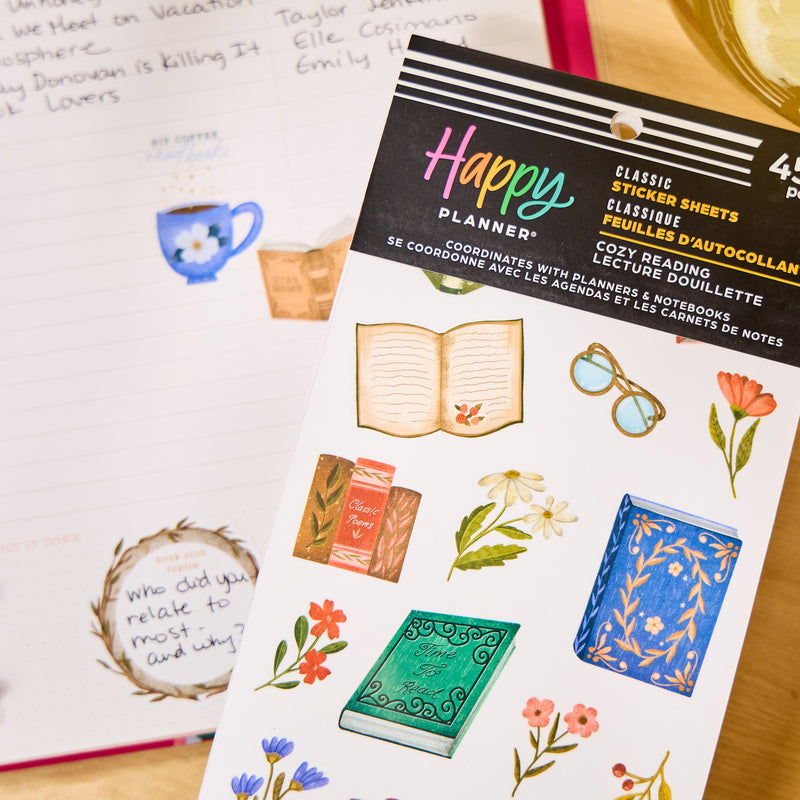 We Meet on Vacation
Taylor
Elle Cosimano
Emily
Donovan is Killing It
Lovers
SIP COFFEE
read books
STAY
HOME
book club
topics
who did you
relate to
most-
and why?
Happy
PLANNER®
CLASSIC
STICKER SHEETS
CLASSIQUE
FEUILLES D'AUTOCOLLAN
COZY READING
LECTURE DOUILLETTE
COORDINATES WITH PLANNERS & NOTEBOOKS
SE COORDONNE AVEC LES AGENDAS ET LES CARNETS DE NOTES
Classic
Poems
Time
To
Read